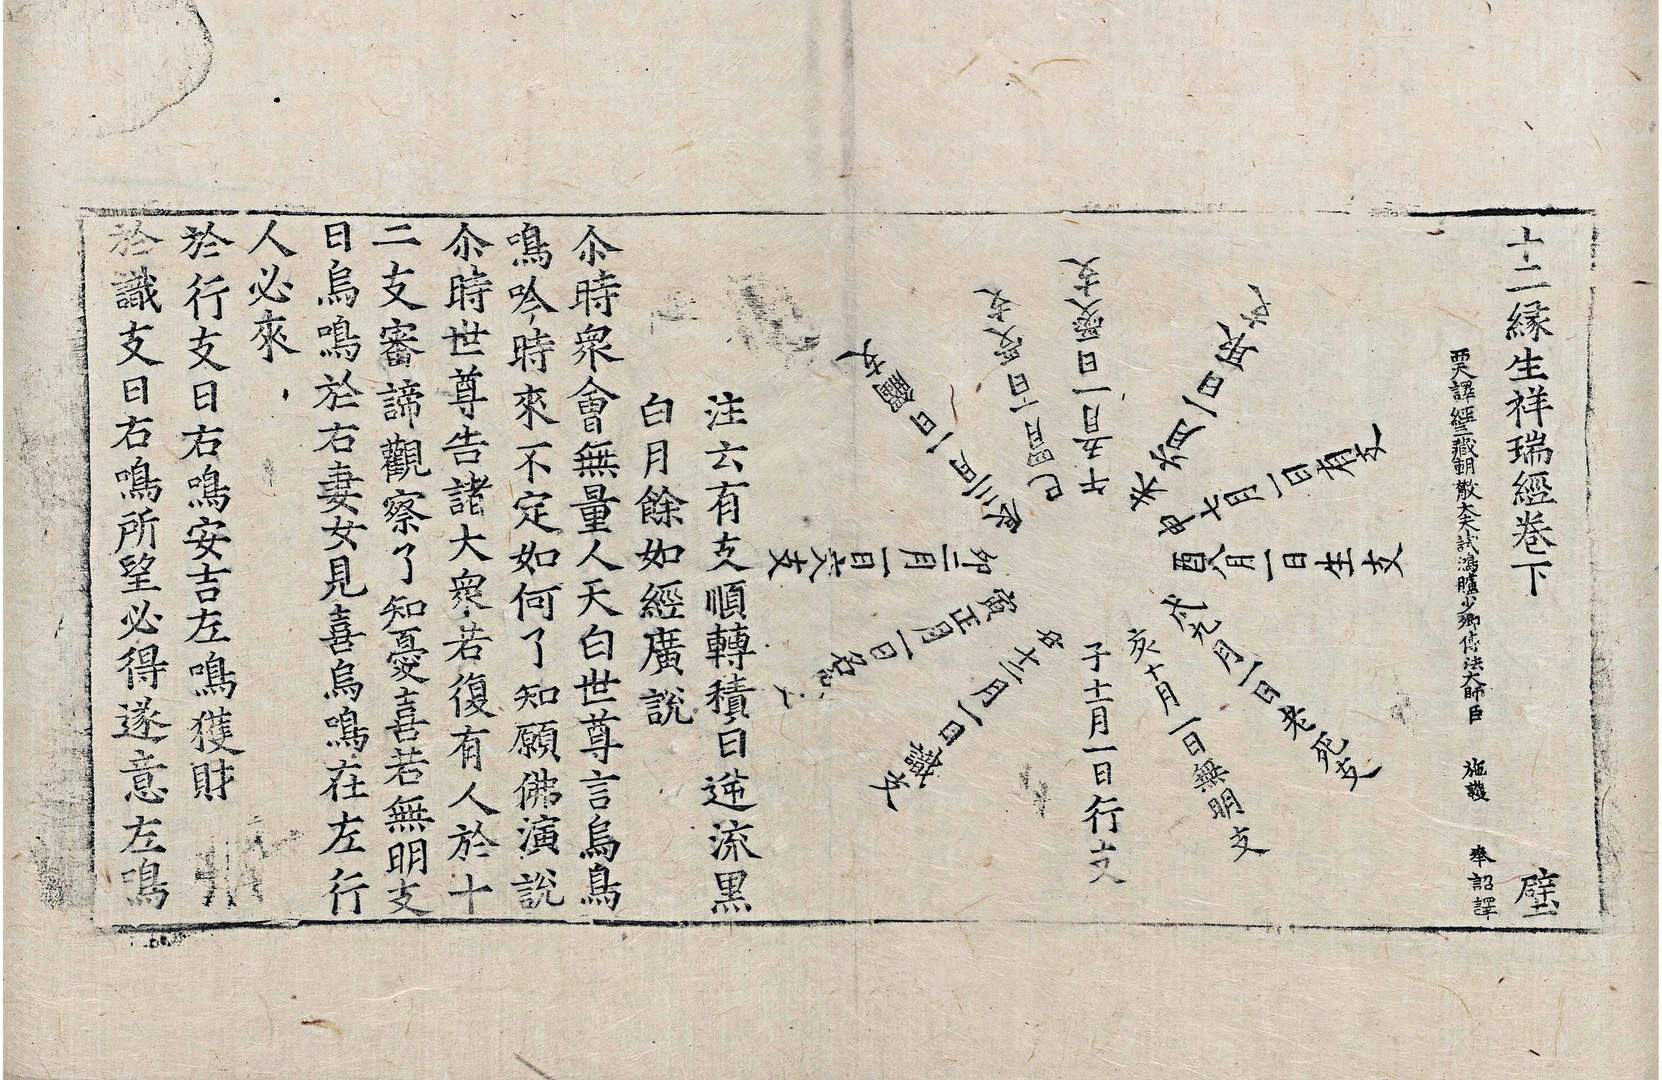 十二緣生祥瑞經卷下 璧
西天譯經三藏朝散大夫試鴻臚少卿傳法大師臣 施護 奉詔譯
子十一月一日行支
亥十月一日無明支
戌九月一日老死支
酉八月一日生支
申七月一日有支
未六月一日取支
午五月一日愛支
巳四月一日受支
辰三月一日觸支
卯二月一日六支
寅正月一日名色
丑十二月一日識支
注云有支順轉積日逆流黑
白月餘如經廣說
尒時衆會無量人天白世尊言烏鳥
鳴吟時來不定如何了知願佛演說
尒時世尊告諸大衆若復有人於十
二支審諦觀察了知憂喜若無明支
日烏鳴於右妻女見喜烏鳴在左行
人必來
於行支日右鳴安吉左鳴獲財
於識支日右鳴所望必得遂意左鳴